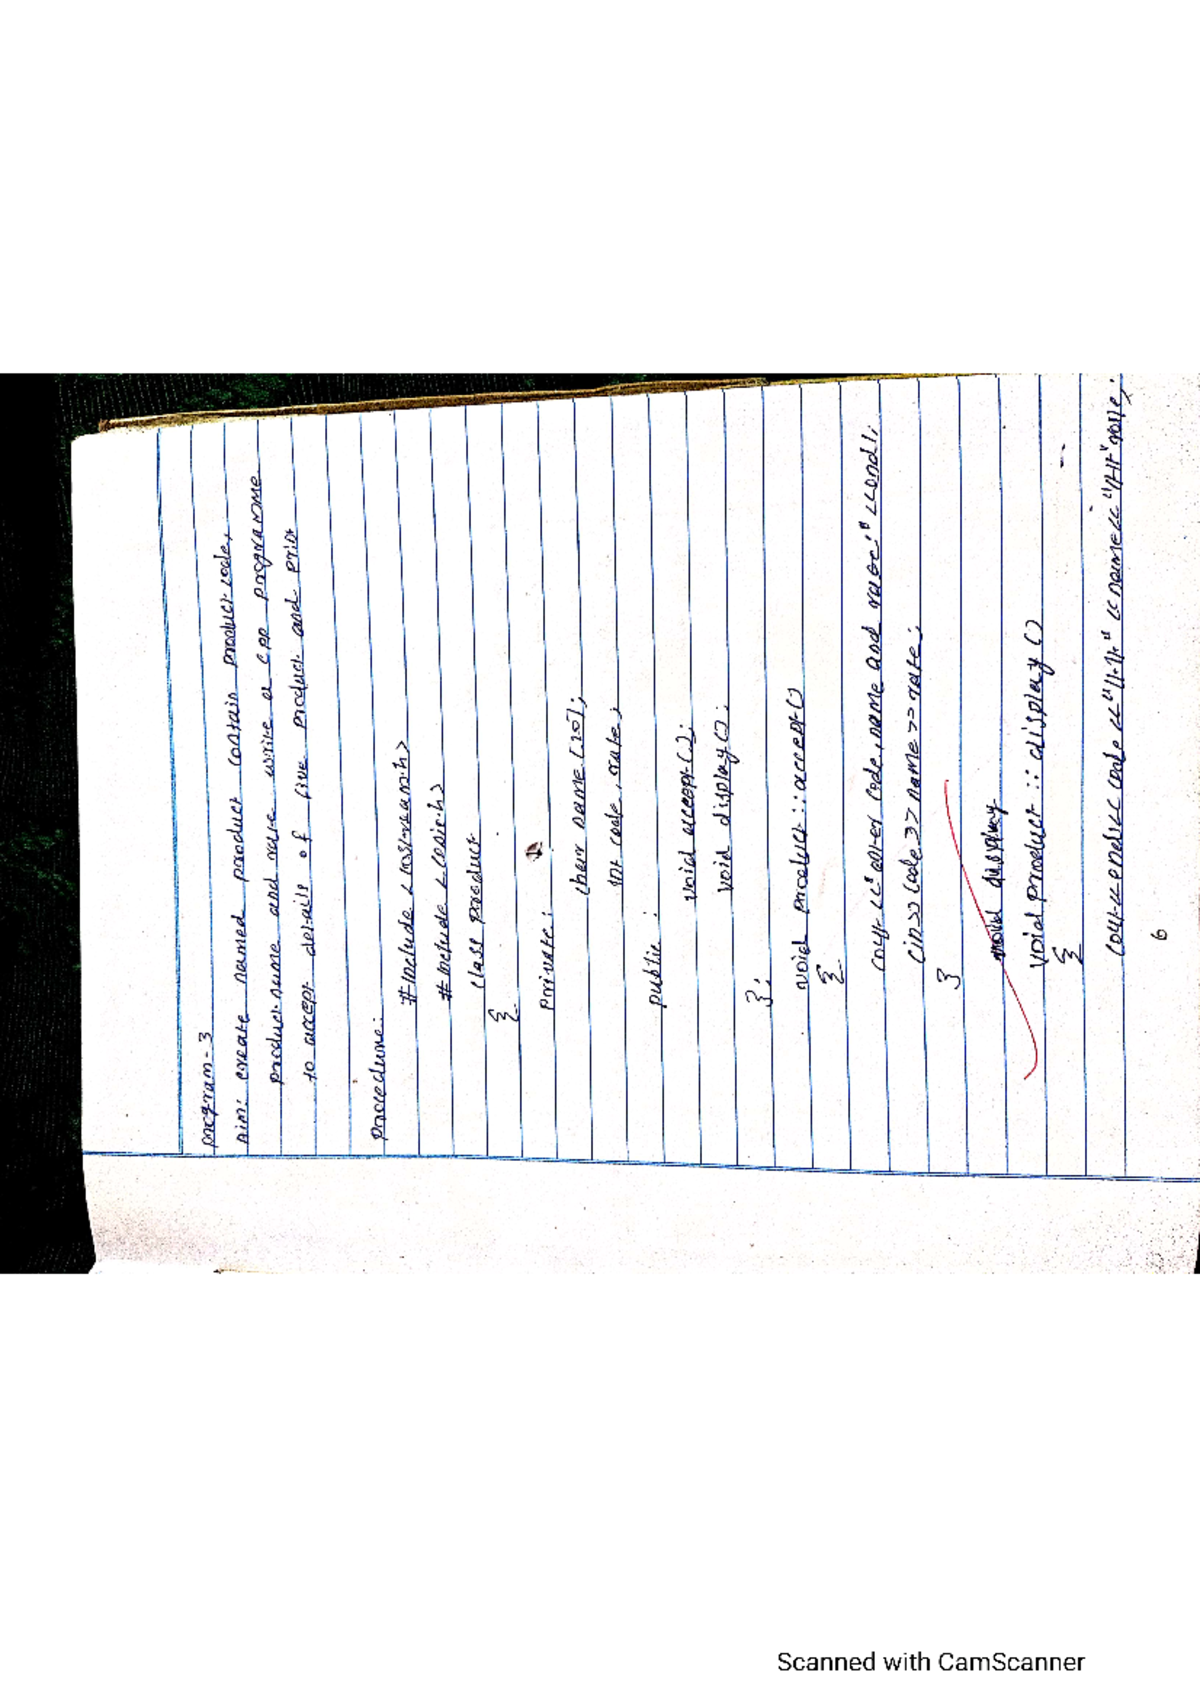 program-3
Aim: create named product contain product code,
product name and rate write a cpp programme
to accept details of five product and print
procedure:
#include <iostream.h>
#include <conio.h>
class product
{
private:
char name[20];
int code, rate;
public:
void accept();
void display();
};
void product::accept()
{
cout<<"enter code, name and rate:"<<endl;
cin>>code>>name>>rate;
}
void display
void product :: display ()
{
cout<<endl<<code<<"\t\t"<<name<<"\t\t"rate;
6
Scanned with CamScanner